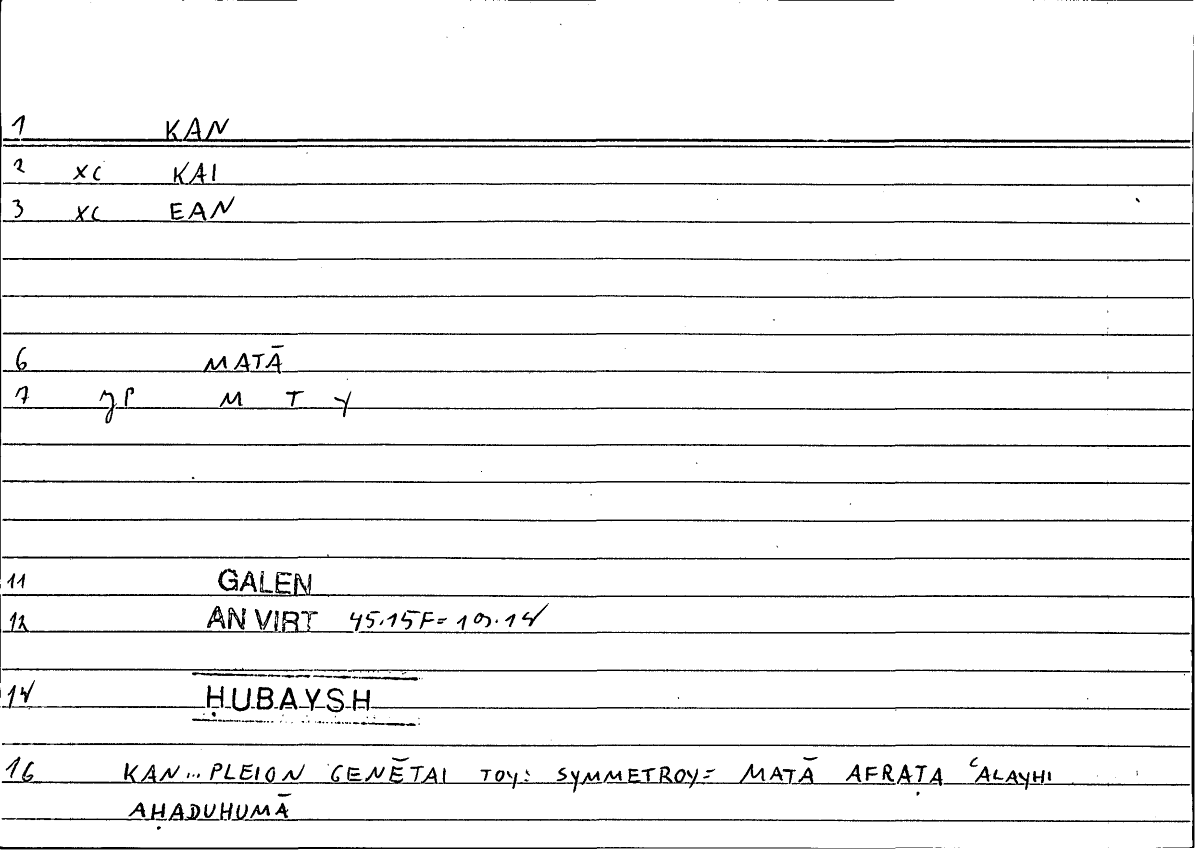 1 KAN
2 XC KAI
3 XC EAN
6 MATĀ
7 M T Y
11 GALEN
12 AN VIRT 45.15F=
14 ḤUBAYSH
16 KAN... PLEION GENĒTAI TOY: SYMMETROY= MATĀ AFRAṬA ʿALAYHI
AḤADUHUMĀ